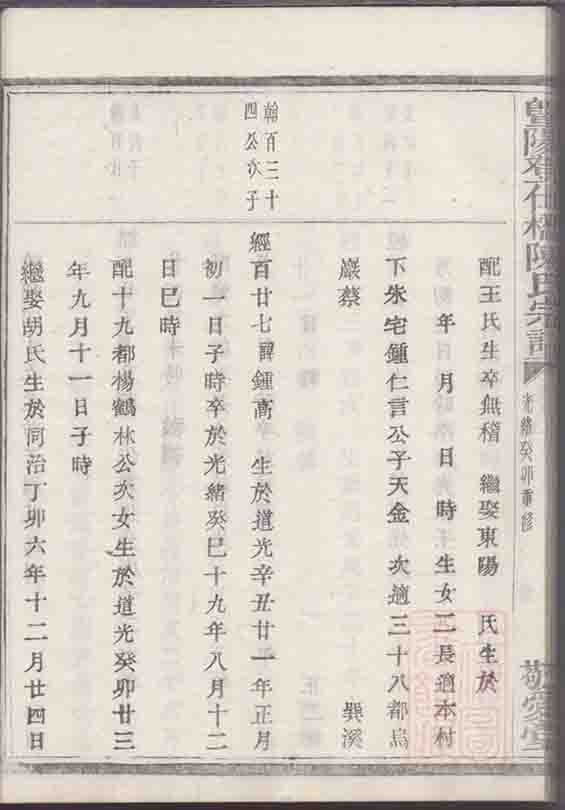 暨陽登仕橋陳氏宗譜
光緒癸卯重修
敬愛堂
配王氏生卒無稽 繼娶東陽 氏生於
年 月 日 時 生女二長適本村
下朱宅鍾仁言公子天金 次適三十八都烏
巖蔡 巽溪
翰百三十
四公次子
經百廿七 諱鍾高 生於道光辛丑廿一年正月
初一日子時卒於光緒癸巳十九年八月十二
日巳時
配十九都楊鶴林公次女生於道光癸卯廿三
年九月十一日子時
繼娶胡氏生於同治丁卯六年十二月廿四日